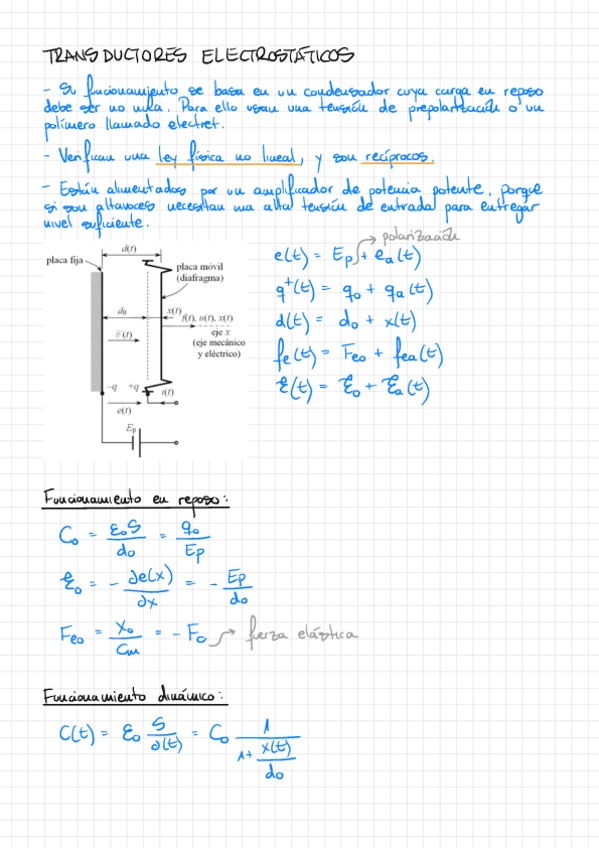 TRANSDUCTORES ELECTROSTÁTICOS
- Su funcionamiento se basa en un condensador cuya carga en reposo
debe ser no nula. Para ello usan una tensión de prepolarización o un
polímero llamado electret.
- Verifican una ley física no lineal, y son recíprocos.
- Están alimentados por un amplificador de potencia potente, porque
si son altavoces necesitan una alta tensión de entrada para entregar
nivel suficiente.
d(t)
placa fija
placa móvil
(diafragma)
d₀
x(t)
f(t), u(t), x(t)
ℰ(t)
eje x
(eje mecánico
y eléctrico)
-q +q
i(t)
e(t)
Eₚ
polarización
e(t) = Eₚ + eₐ(t)
q⁺(t) = q₀ + qₐ(t)
d(t) = d₀ + x(t)
fe(t) = Fe₀ + feₐ(t)
ℰ(t) = ℰ₀ + ℰₐ(t)
Funcionamiento en reposo:
C₀ = ε₀S / d₀ = q₀ / Eₚ
ℰ₀ = - ∂e(x) / ∂x = - Eₚ / d₀
Fe₀ = x₀ / Cm = - Fc → fuerza elástica
Funcionamiento dinámico:
C(t) = ε₀ S / d(t) = C₀ 1 / (1 + x(t) / d₀)